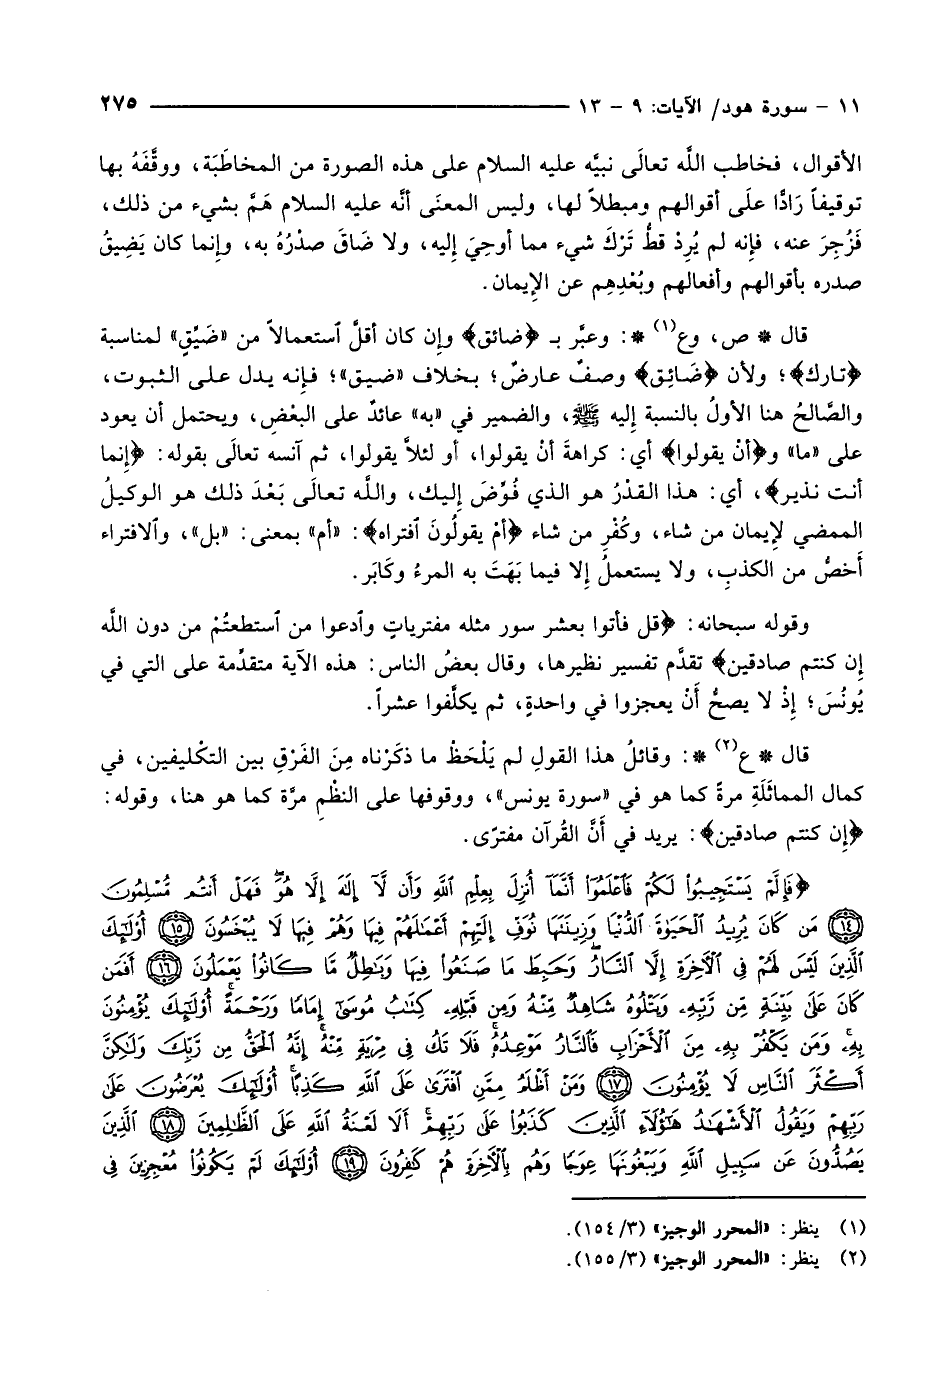 ١١ - سورة هود/ الآيات: ٩ - ١٣ ٢٧٥
الأقوال، فخاطب اللَّه تعالَى نبيَّه عليه السلام على هذه الصورة من المخاطَبَة، ووقَّفَهُ بها
توقيفاً رَادًّا علَى أقوالهم ومبطلاً لها، وليس المعنَى أنَّه عليه السلام هَمَّ بشيء من ذلك،
فَزُجِرَ عنه، فإِنه لم يُرِدْ قطُّ تَرْكَ شيء مما أوحِيَ إِليه، ولا ضَاقَ صدْرُهُ به، وإِنما كان يَضِيقُ
صدره بأقوالهم وأفعالهم وبُعْدِهِم عن الإِيمان.
قال * ص، وع(١) *: وعبَّر بـ ﴿ضائق﴾ وإِن كان أقلَّ ٱستعمالاً من «ضَيِّقٍ» لمناسبة
﴿تارك﴾؛ ولأن ﴿ضَائِق﴾ وصفٌ عارضٌ؛ بخلاف «ضيق»؛ فإِنه يدل على الثبوت،
والصَّالحُ هنا الأولُ بالنسبة إِليه ﷺ، والضمير في «به» عائدٌ على البَعْضِ، ويحتمل أن يعود
على «ما» و﴿أنْ يقولوا﴾ أي: كراهةَ أنْ يقولوا، أو لئلاَّ يقولوا، ثم آنسه تعالَى بقوله: ﴿إِنما
أنت نذير﴾، أي: هذا القدْرُ هو الذي فُوِّضَ إِليك، واللَّه تعالَى بَعْدَ ذلك هو الوكيلُ
الممضي لإِيمان من شاء، وكُفْرِ من شاء ﴿أَمْ يقولُونَ ٱفتراه﴾: «أم» بمعنى: «بل»، وٱلافتراء
أَخصُّ من الكذبِ، ولا يستعملُ إِلا فيما بَهَتَ به المرءُ وكَابَر.
وقوله سبحانه: ﴿قل فأتوا بعشر سور مثله مفترياتٍ وٱدعوا من ٱستطعتُمْ من دون اللَّه
إِن كنتم صادقين﴾ تقدَّم تفسير نظيرها، وقال بعضُ الناس: هذه الآية متقدِّمة على التي في
يُونُسَ؛ إِذْ لا يصحُّ أَنْ يعجزوا في واحدةٍ، ثم يكلَّفوا عشراً.
قال * ع(٢) *: وقائلُ هذا القولِ لم يَلْحَظْ ما ذكَرْناه مِنَ الفَرْقِ بين التكْليفين، في
كمال المماثَلَةِ مرةً كما هو في «سورة يونس»، ووقوفها على النظْمِ مرَّة كما هو هنا، وقوله:
﴿إِن كنتم صادقين﴾: يريد في أَنَّ القُرآن مفترًى.
﴿فَإِلَّمْ يَسْتَجِيبُوا۟ لَكُمْ فَٱعْلَمُوٓا۟ أَنَّمَآ أُنزِلَ بِعِلْمِ ٱللَّهِ وَأَن لَّآ إِلَٰهَ إِلَّا هُوَۖ فَهَلْ أَنتُم مُّسْلِمُونَ
﴿١٤﴾ مَن كَانَ يُرِيدُ ٱلْحَيَوٰةَ ٱلدُّنْيَا وَزِينَتَهَا نُوَفِّ إِلَيْهِمْ أَعْمَٰلَهُمْ فِيهَا وَهُمْ فِيهَا لَا يُبْخَسُونَ ﴿١٥﴾ أُو۟لَٰٓئِكَ
ٱلَّذِينَ لَيْسَ لَهُمْ فِى ٱلْـَٔاخِرَةِ إِلَّا ٱلنَّارُۖ وَحَبِطَ مَا صَنَعُوا۟ فِيهَا وَبَٰطِلٌ مَّا كَانُوا۟ يَعْمَلُونَ ﴿١٦﴾ أَفَمَن
كَانَ عَلَىٰ بَيِّنَةٍ مِّن رَّبِّهِۦ وَيَتْلُوهُ شَاهِدٌ مِّنْهُ وَمِن قَبْلِهِۦ كِتَٰبُ مُوسَىٰٓ إِمَامًا وَرَحْمَةًۚ أُو۟لَٰٓئِكَ يُؤْمِنُونَ
بِهِۦۚ وَمَن يَكْفُرْ بِهِۦ مِنَ ٱلْأَحْزَابِ فَٱلنَّارُ مَوْعِدُهُۥۚ فَلَا تَكُ فِى مِرْيَةٍ مِّنْهُۚ إِنَّهُ ٱلْحَقُّ مِن رَّبِّكَ وَلَٰكِنَّ
أَكْثَرَ ٱلنَّاسِ لَا يُؤْمِنُونَ ﴿١٧﴾ وَمَنْ أَظْلَمُ مِمَّنِ ٱفْتَرَىٰ عَلَى ٱللَّهِ كَذِبًاۚ أُو۟لَٰٓئِكَ يُعْرَضُونَ عَلَىٰ
رَبِّهِمْ وَيَقُولُ ٱلْأَشْهَٰدُ هَٰٓؤُلَآءِ ٱلَّذِينَ كَذَبُوا۟ عَلَىٰ رَبِّهِمْۚ أَلَا لَعْنَةُ ٱللَّهِ عَلَى ٱلظَّٰلِمِينَ ﴿١٨﴾ ٱلَّذِينَ
يَصُدُّونَ عَن سَبِيلِ ٱللَّهِ وَيَبْغُونَهَا عِوَجًا وَهُم بِٱلْـَٔاخِرَةِ هُمْ كَٰفِرُونَ ﴿١٩﴾ أُو۟لَٰٓئِكَ لَمْ يَكُونُوا۟ مُعْجِزِينَ فِى
(١) ينظر: «المحرر الوجيز» (٣/ ١٥٤).
(٢) ينظر: «المحرر الوجيز» (٣/ ١٥٥).